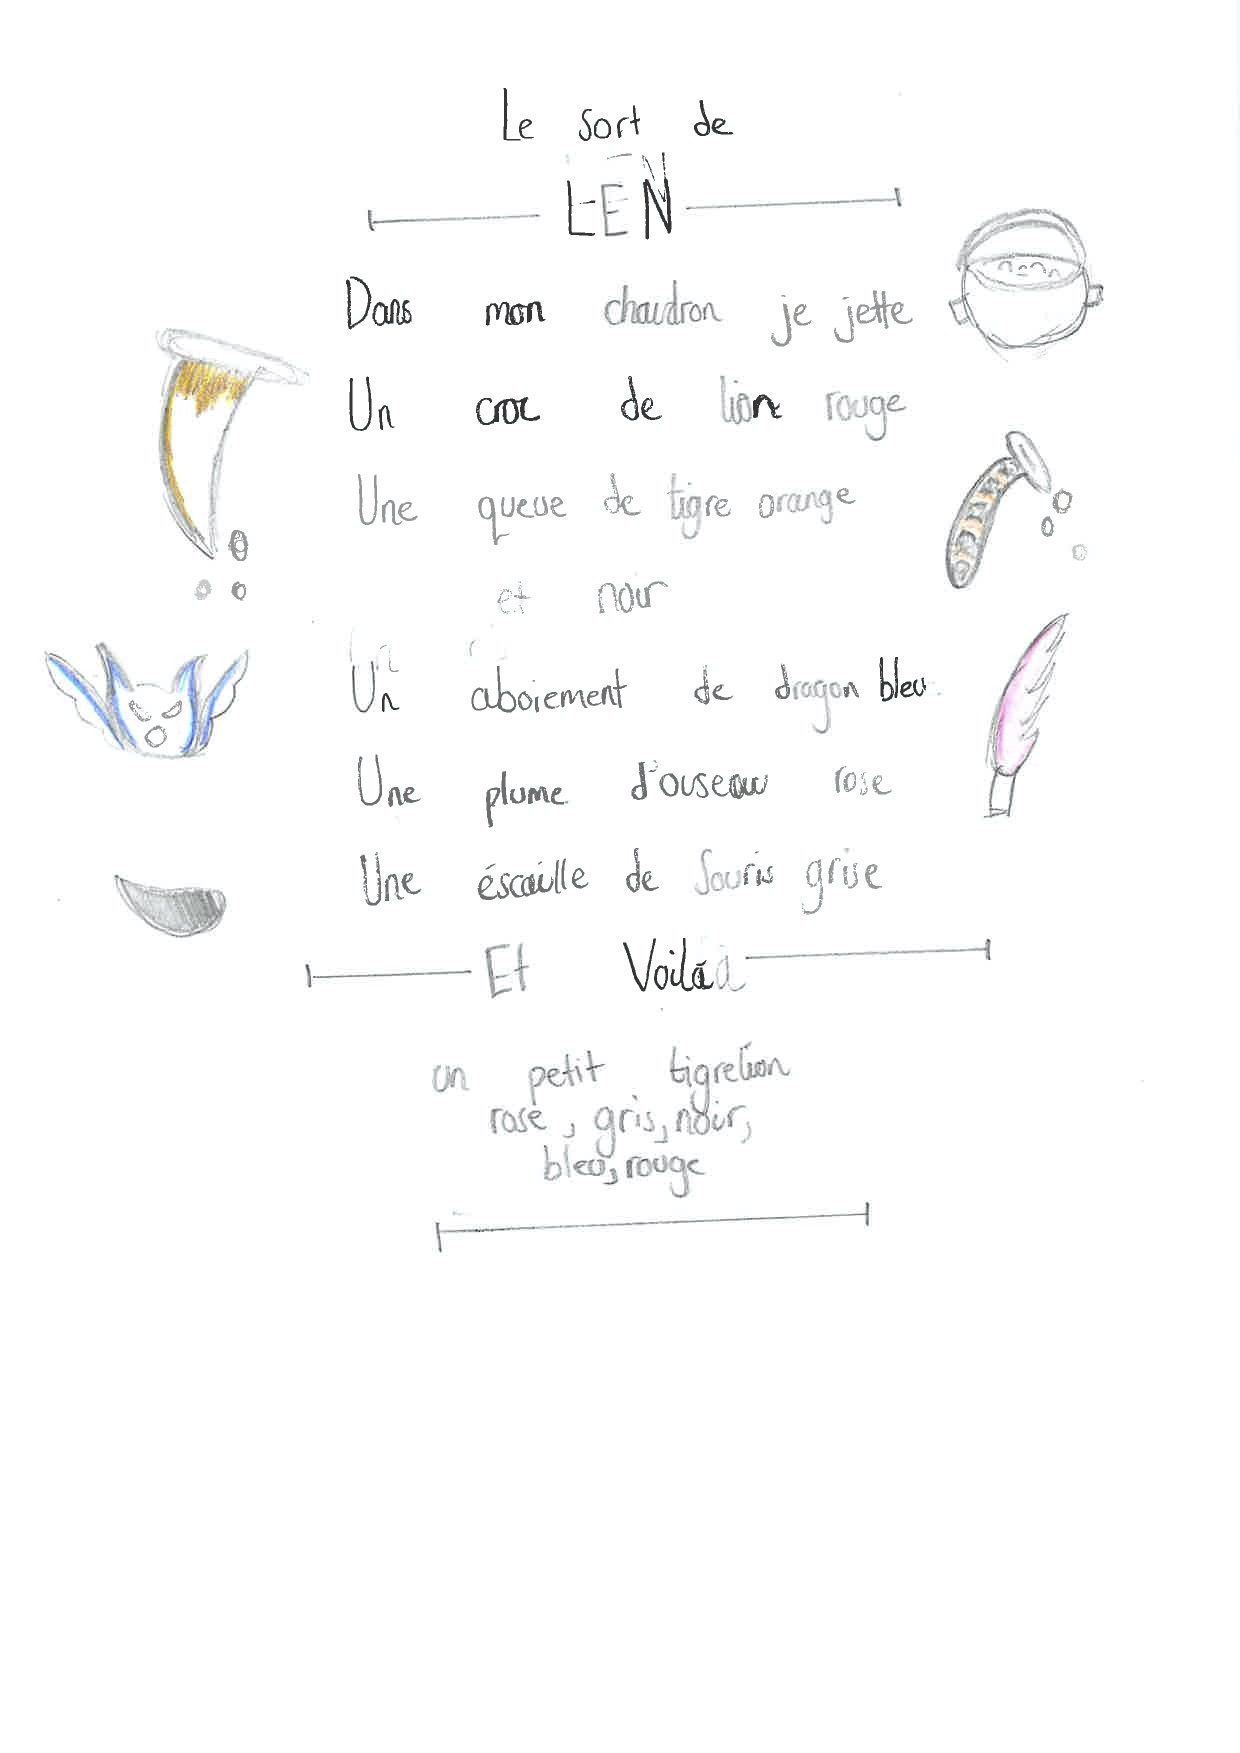 Le sort de
LEN
Dans mon chaudron je jette
Un croc de lion rouge
Une queue de tigre orange
et noir
Un aboiement de dragon bleu.
Une plume d'oiseau rose
Une éscaille de Souris grise
Et Voilá
un petit tigrelion
rose, gris, noir,
bleu, rouge